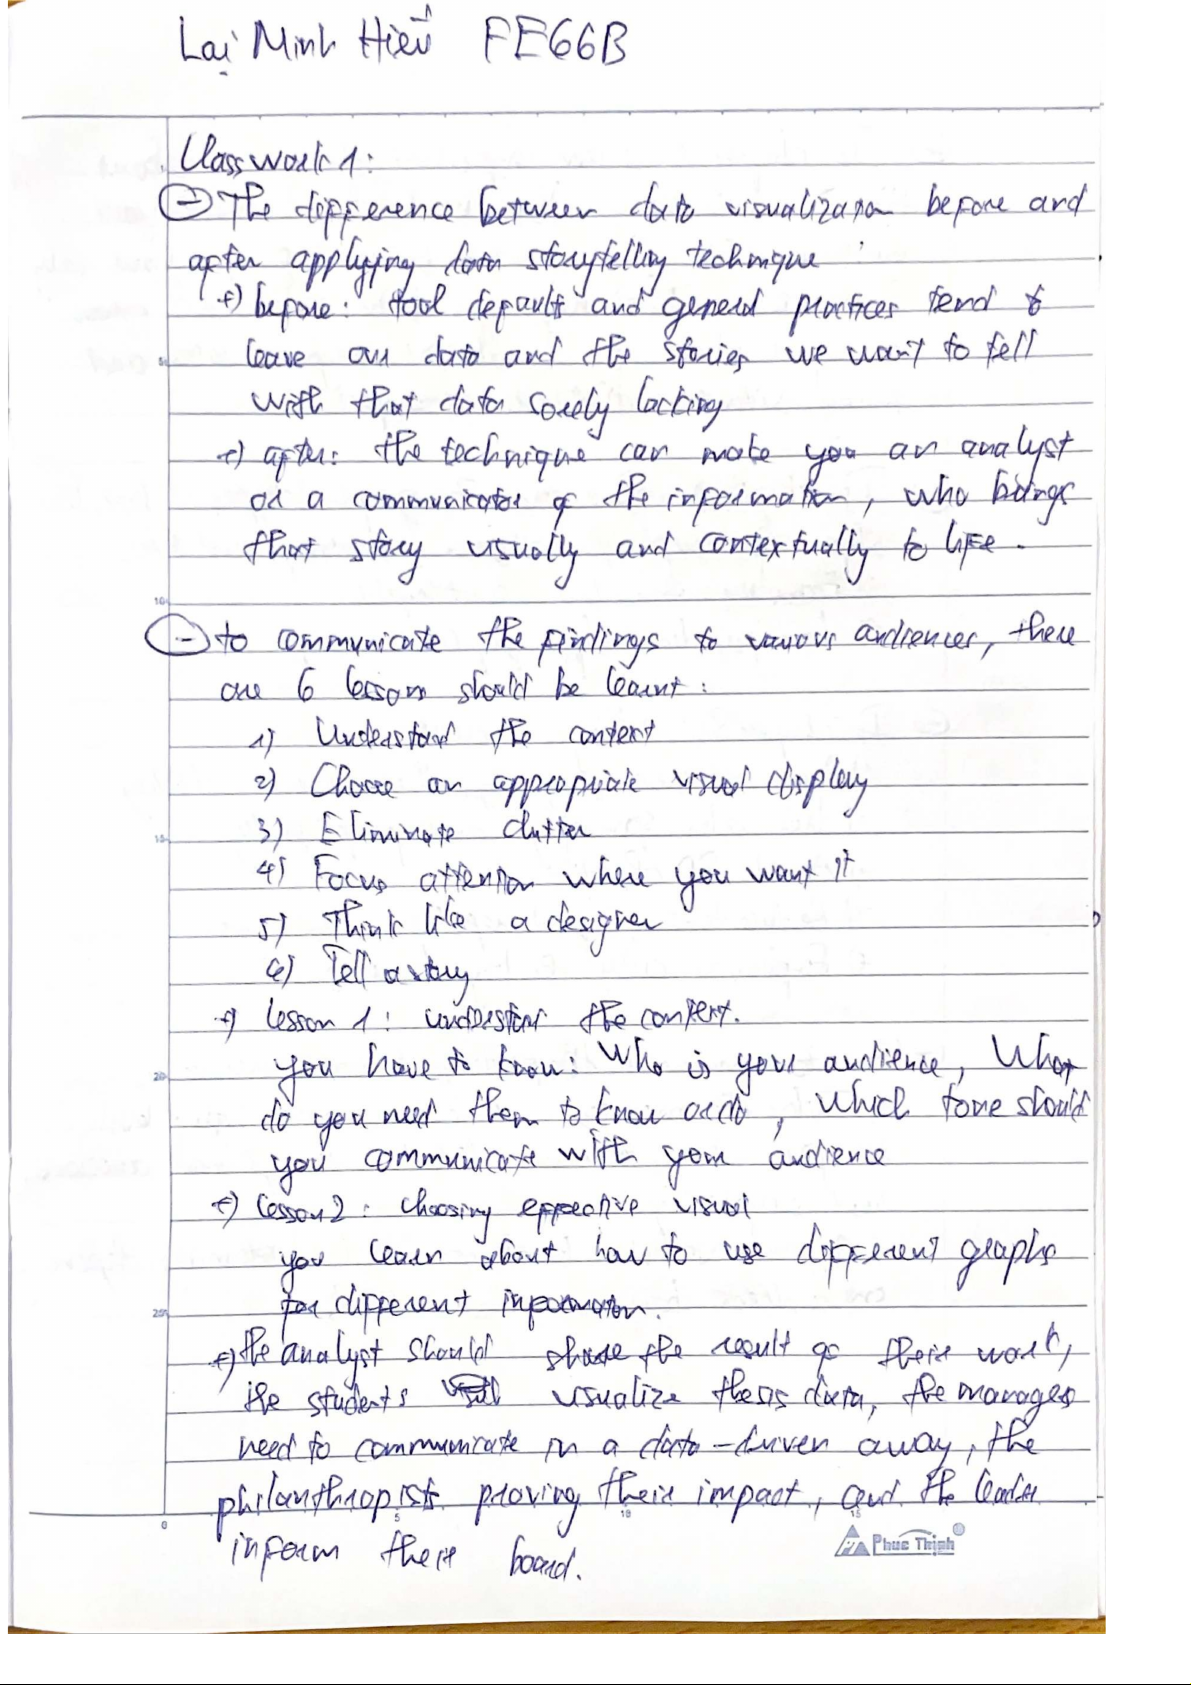 Lại Minh Hiếu FE66B
Classwork 1:
- The difference between data visualization before and
after applying data storytelling technique
+) before: tool default and general practices tend to
leave our data and the stories we want to tell
with that data sorely lacking
+) after: the technique can make you an analyst
or a communicator of the information, who brings
that story visually and contextually to life.
- to communicate the findings to various audiences, there
are 6 lessons should be learnt:
1) Understand the context
2) Choose an appropriate visual display
3) Eliminate clutter
4) Focus attention where you want it
5) Think like a designer
6) Tell a story
+) lesson 1: understand the context.
you have to know: Who is your audience, What
do you need them to know or do, which tone should
you communicate with your audience
+) lesson 2: choosing effective visual
you learn about how to use different graphs
for different information.
+) the analyst should share the result of their work,
the students visualize thesis data, the manager
need to communicate in a data-driven away, the
philanthropists proving their impact, and the leader
inform their board.
5
10
15
20
25
0 5 10 15
Phuc Thinh